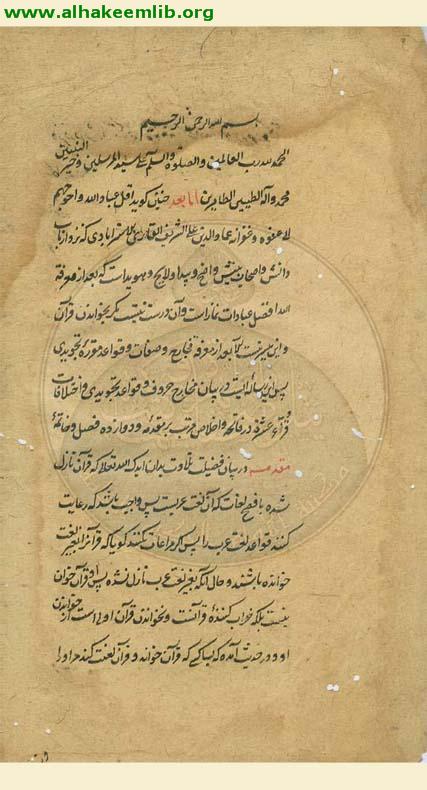 www.alhakeemlib.org
بسم الله الرحمن الرحیم
الحمد لله رب العالمین والصلوة والسلم علی سید المرسلین وخیر النبیین
محمد وآله الطیبین الطاهرین اما بعد چنین کوید اقل عباد الله واحوجهم
لا عفوه وغفرانه عماد الدین علی الشریف القاری الاسترابادی که نزد ارباب
دانش واصحاب بینش واضح وپیدا ولایح وهویداست که بعد از معرفة
الله افضل عبادات نماز است وآن درست نیست مکر بخواندن قرآن
واین میسر نیست الا بعد از معرفة مخارج وصفات وقواعد مقررۀ تجویدی
پس این رساله ایست در بیان مخارج حروف وقواعد تجویدی واختلافات
قرآء عشره در فاتحه واخلاص مرتب بر مقدمه ودوازده فصل وخاتمۀ
مقدمه در بیان فضیلت تلاوت بدان ایدک الله تعالی که قرآن نازل
شده بافصح لغات که آن لغت عربست پس واجب باشد که رعایت
کنند قواعد لغت عرب را پس اکر مراعات نکنند کویا که قرآنرا بغیر لغت
خوانده باشند وحال آنکه بغیر لغت عرب نازل نشده پس او قرآن خوان
نیست بلکه خراب کنندۀ قرآنست ونخواندن قرآن اولی است از خواندن
او ودر حدیث آمده که بسا کسی که قرآن خواند وقرآن لعنت کند مر او را